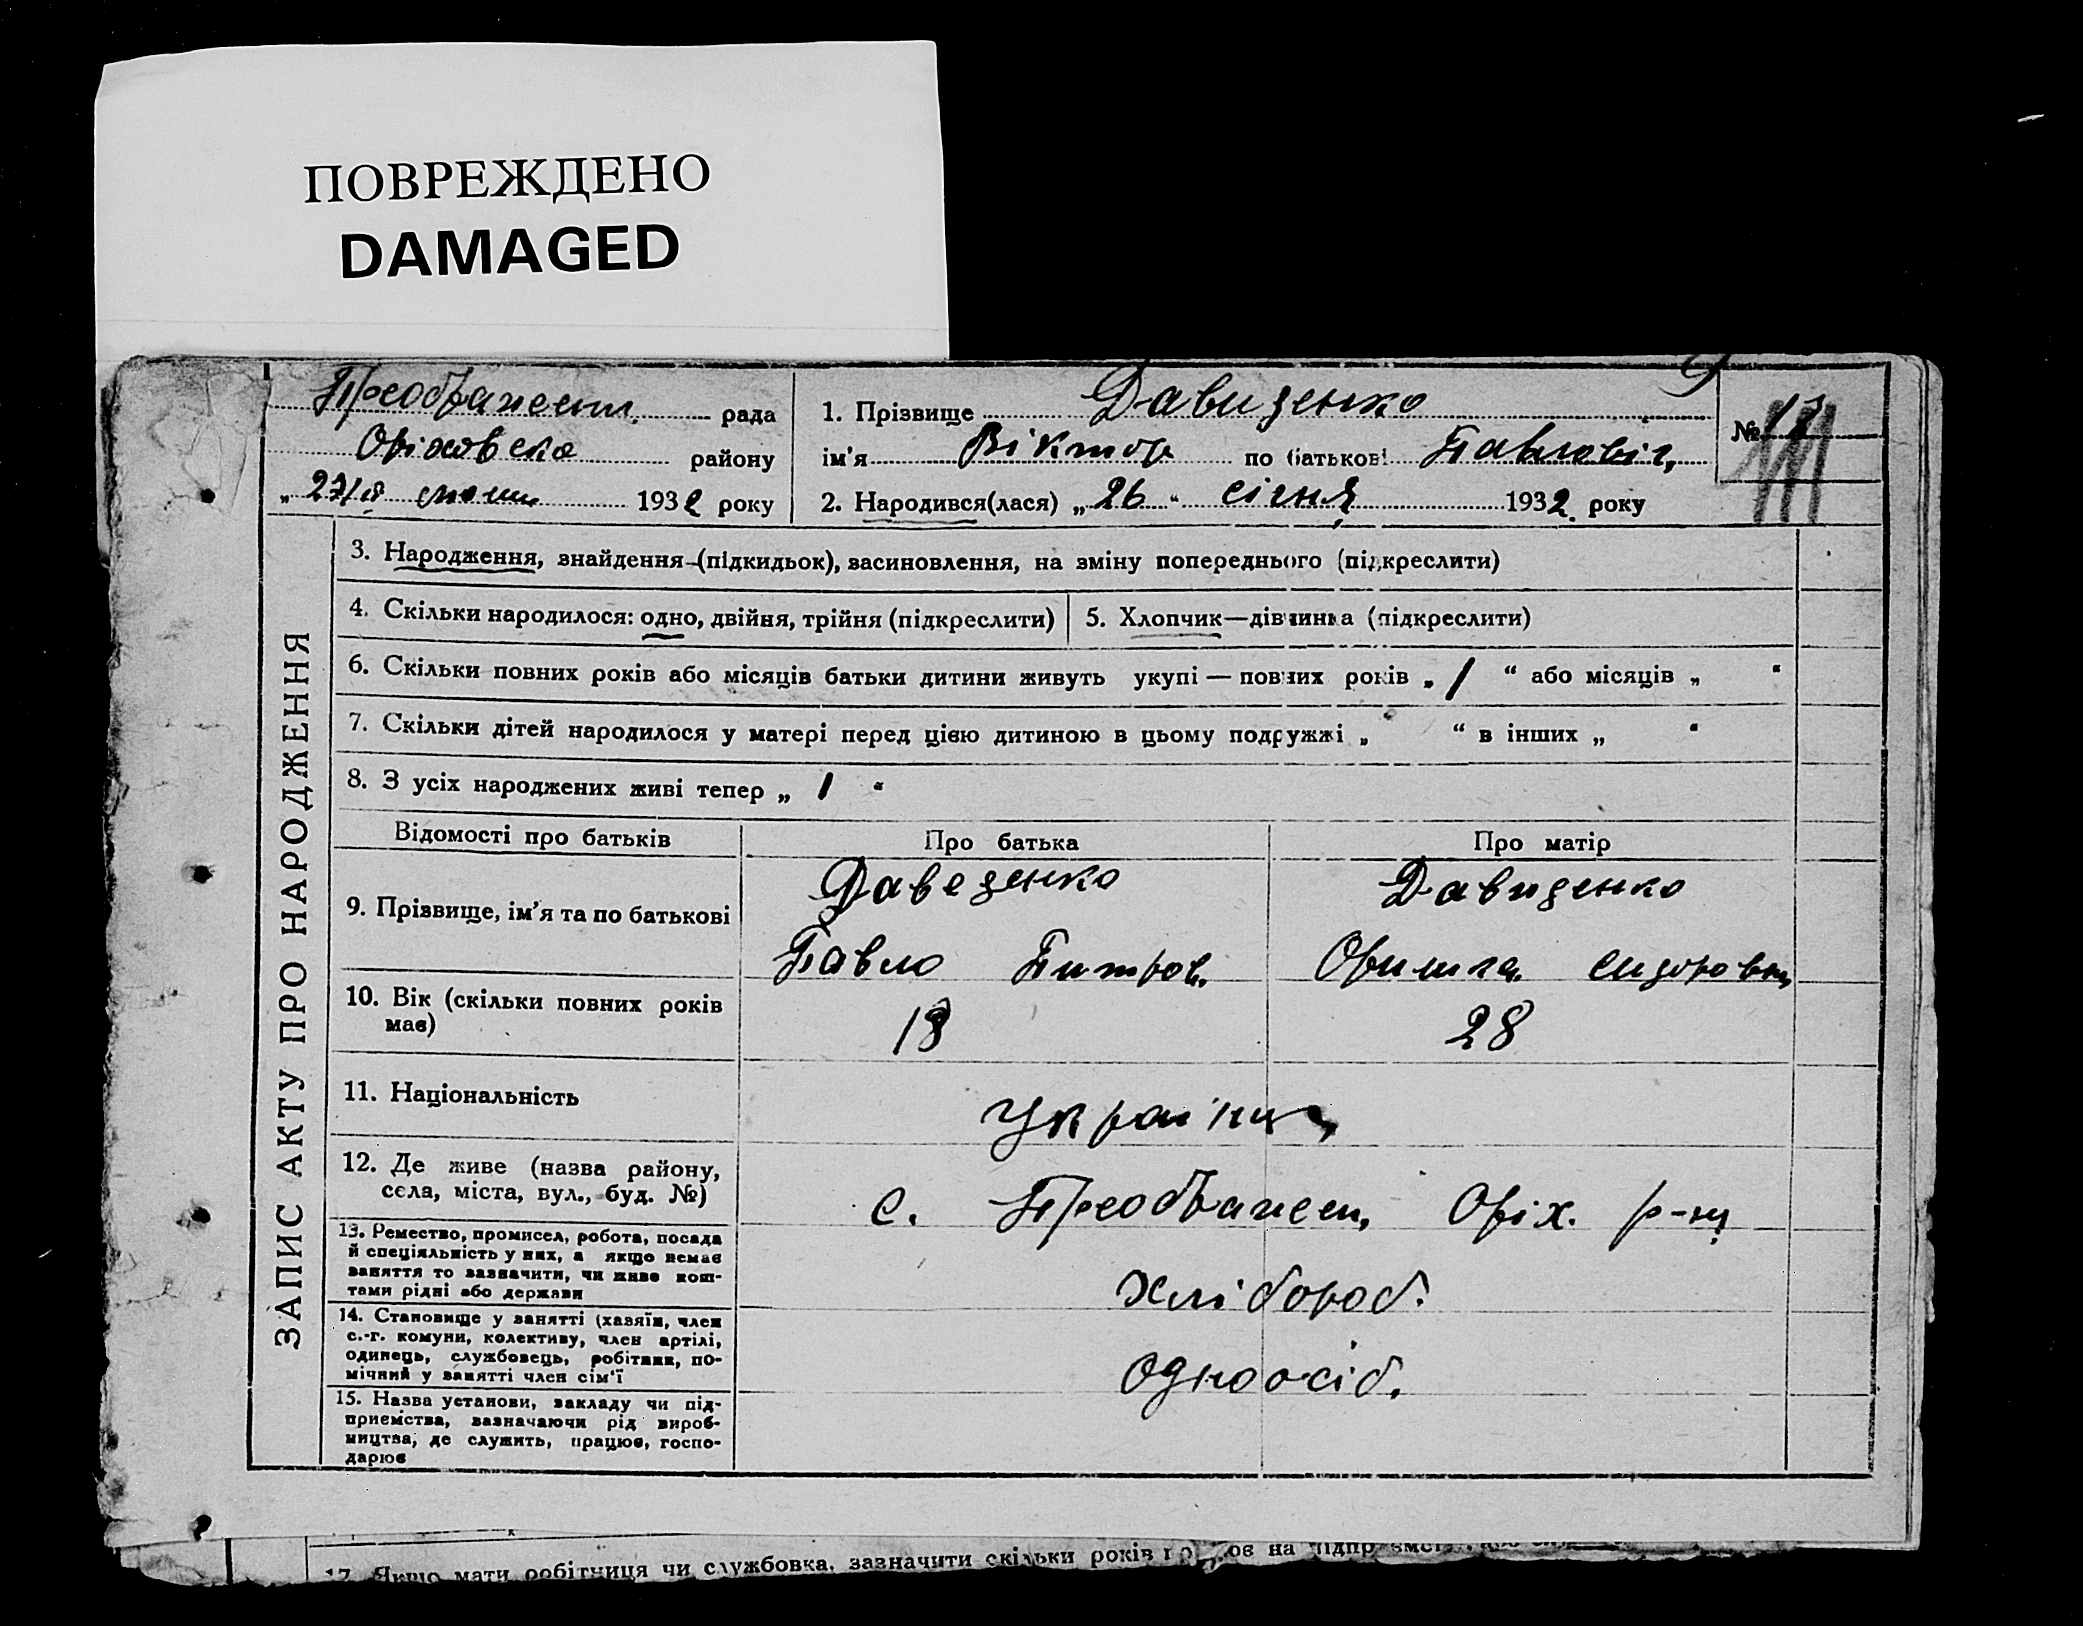 ПОВРЕЖДЕНО
DAMAGED
Преображен. рада
Оріховско району
„ 27/II 1932 року
1. Прізвище Давиденко
ім'я Віктор по батькові Павлович
2. Народився(лася) „ 26 “ січня 1932 року
№
ЗАПИС АКТУ ПРО НАРОДЖЕННЯ
3. Народження, знайдення-(підкидьок), засиновлення, на зміну попереднього (підкреслити)
4. Скільки народилося: одно, двійня, трійня (підкреслити)
5. Хлопчик—дівчинка (підкреслити)
6. Скільки повних років або місяців батьки дитини живуть укупі — повних років „ 1 “ або місяців „ “
7. Скільки дітей народилося у матері перед цією дитиною в цьому подружжі „ “ в інших „ “
8. З усіх народжених живі тепер „ 1 “
Відомості про батьків
Про батька
Про матір
9. Прізвище, ім'я та по батькові
Даведенко
Павло Питров.
Давиденко
Оришка Сидоровна
10. Вік (скільки повних років має)
18
28
11. Національність
Українці
12. Де живе (назва району, села, міста, вул., буд. №)
с. Преображен. Оріх. р-ну
13. Ремество, промисел, робота, посада й спеціяльність у них, а якщо немає заняття то зазначити, чи живе коштами рідні або держави
Хлібороб.
14. Становище у занятті (хазяїн, член с.-г. комуни, колективу, член артілі, одинець, службовець, робітник, помічний у занятті член сім'ї
Одноосіб.
15. Назва установи, закладу чи підприємства, зазначаючи рід виробництва, де служить, працює, господарює
17. Якщо мати робітниця чи службовка, зазначити скільки років